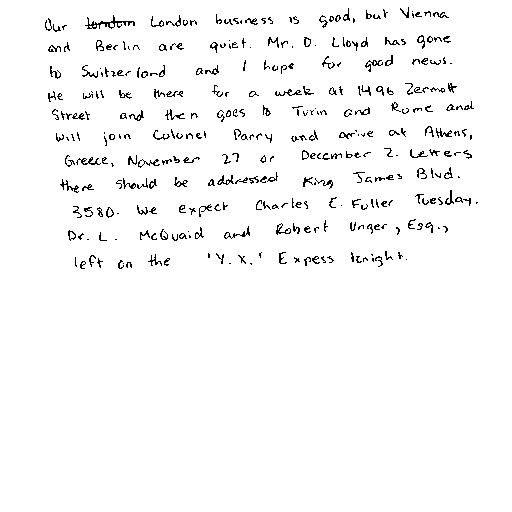 Our london London business is good, but Vienna
and Berlin are quiet. Mr. D. Lloyd has gone
to Switzerland and I hope for good news.
He will be there for a week at 1496 Zermott
Street and then goes to Turin and Rome and
will join Colonel Parry and arrive at Athens,
Greece, November 27 or December 2. Letters
there should be addressed King James Blvd.
3580. We expect Charles E. Fuller Tuesday.
Dr. L. McQuaid and Robert Unger, Esq.,
left on the 'Y.X.' Expess tonight.